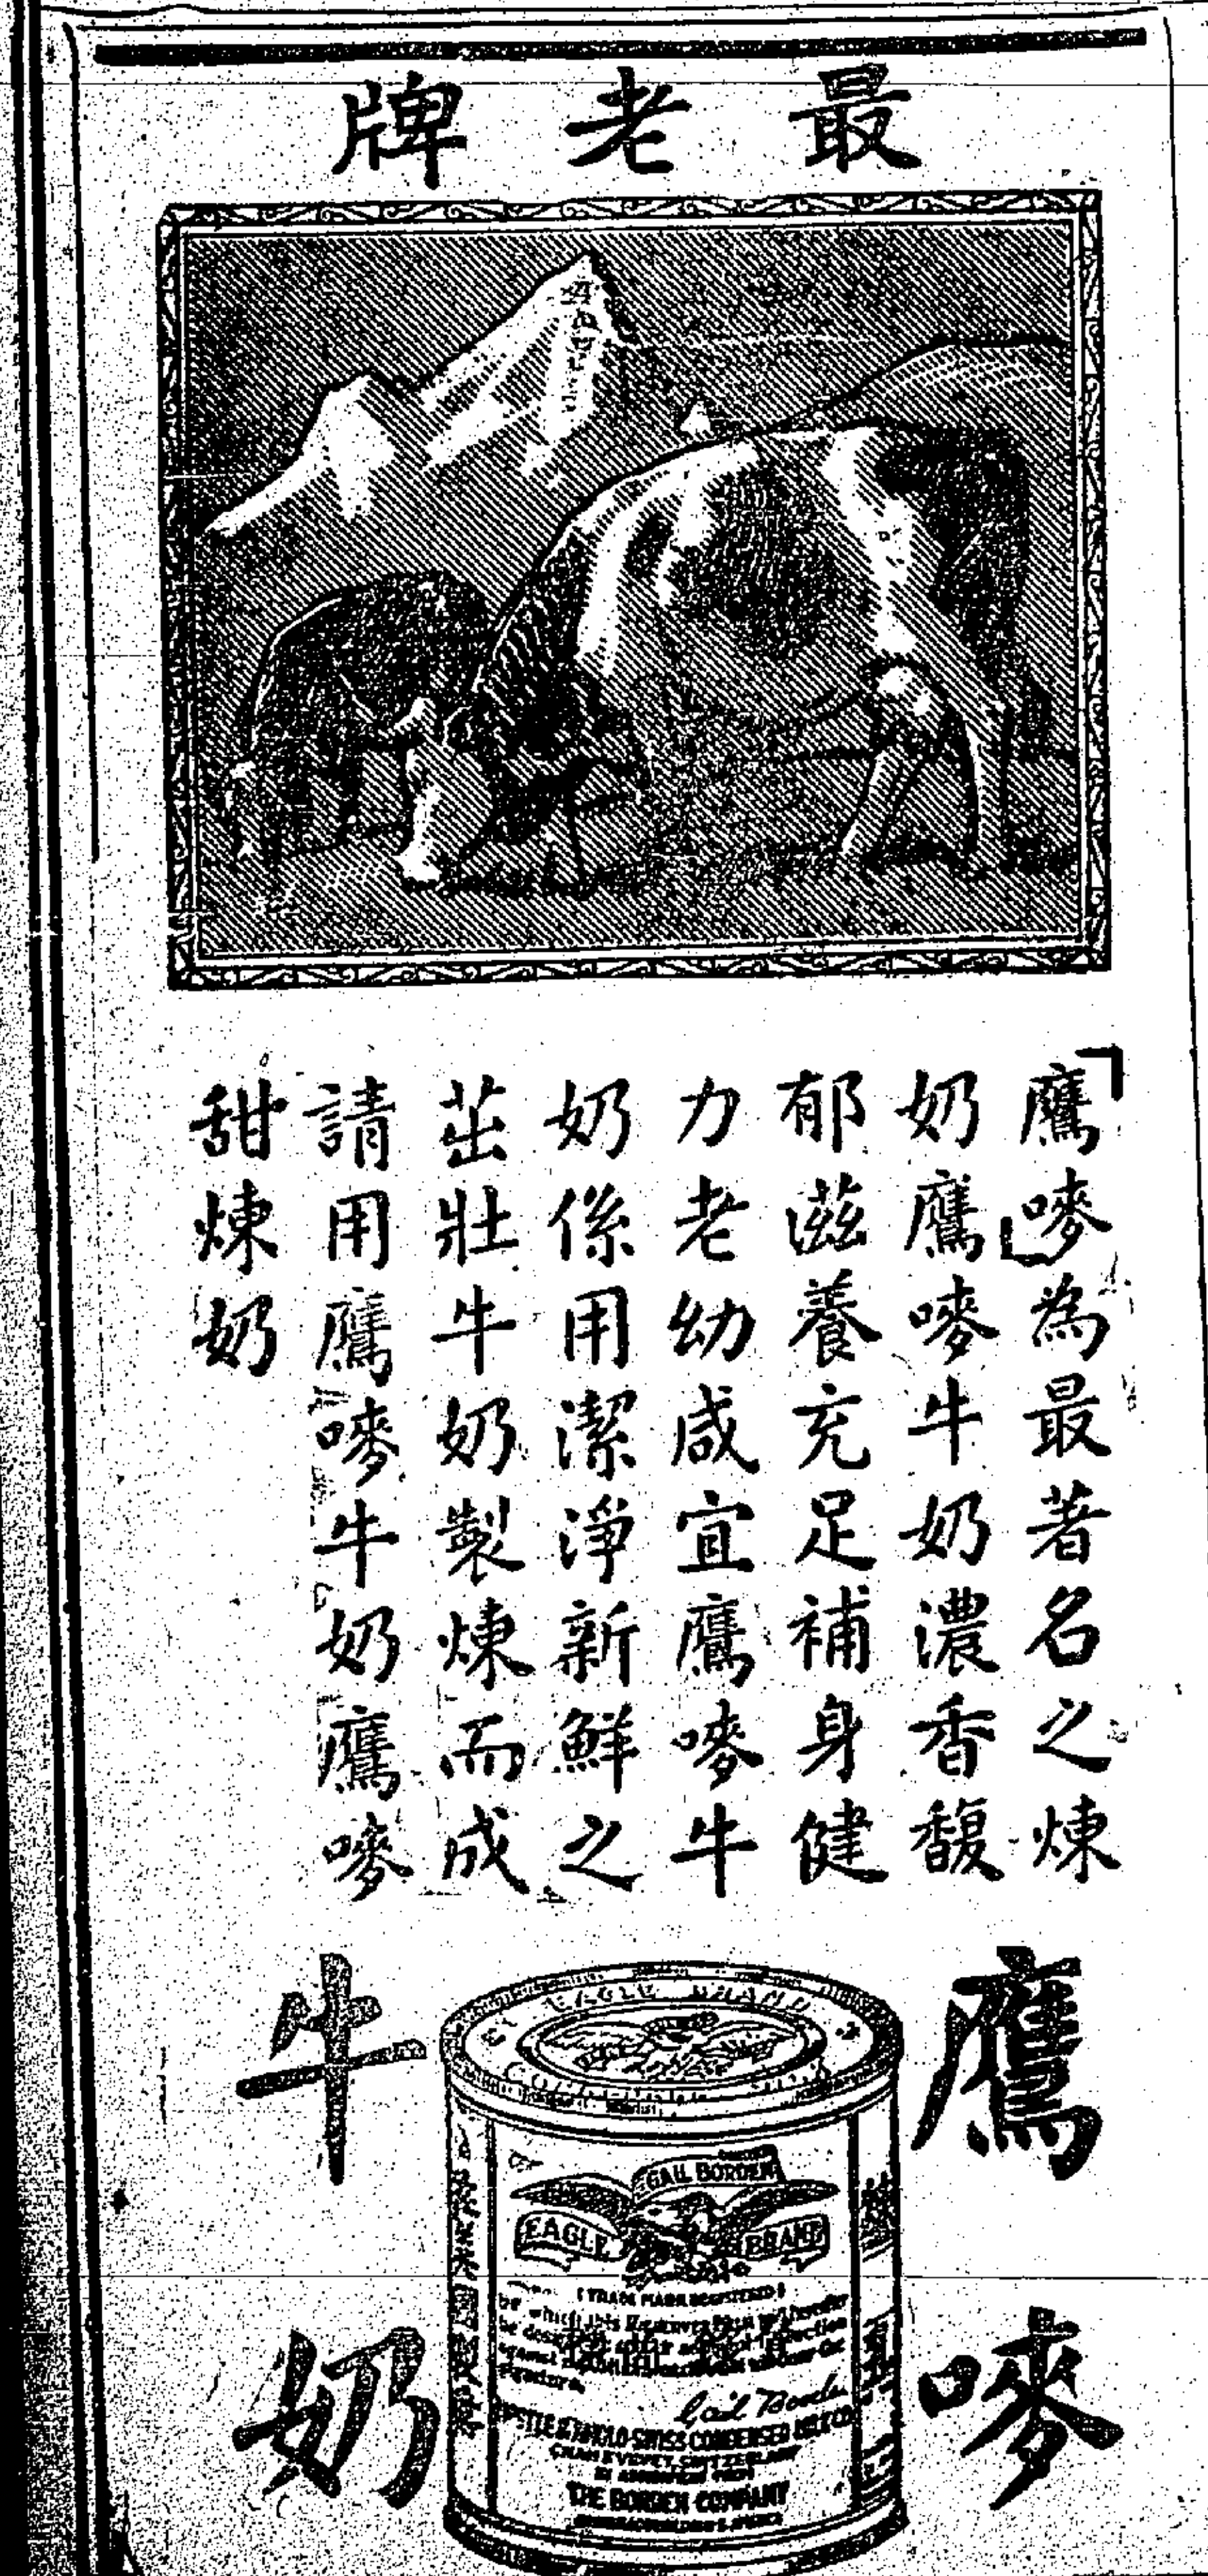 最老牌
「鷹嘜」為最著名之煉
奶鷹嘜牛奶濃香馥
郁滋養充足補身健
力老幼咸宜鷹嘜牛
奶係用潔淨新鮮之
茁壯牛奶製煉而成
請用鷹嘜牛奶鷹嘜
甜煉奶
鷹嘜
牛奶
EAGLE BRAND
GAIL BORDEN
EAGLE BRAND
(TRADE MARK REGISTERED)
Gail Borden
THE BORDEN COMPANY